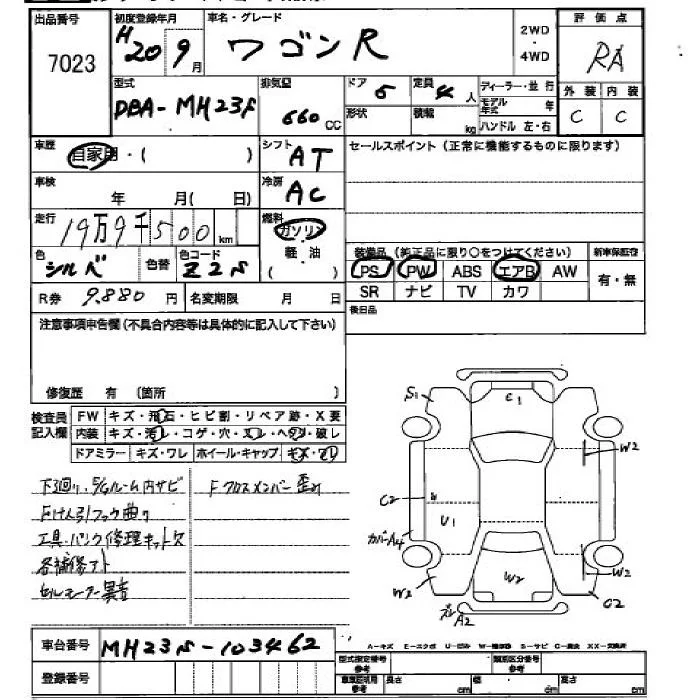 出品番号 初度登録年月 車名・グレード 評価点
7023 H20 9月 ワゴンR 2WD・4WD RA
型式 排気量 ドア 定員 ディーラー・並行 外装 内装
DBA-MH23S 660CC 5 4人 モデル年式 年 C C
形状 積載 kg ハンドル 左・右
車歴 自家用・( ) シフト AT セールスポイント(正常に機能するものに限ります)
車検 年 月( 日) 冷房 AC
走行 19万9千500km 燃料 ガソリン
軽・油
( )
色 シルバ 色替 色コード Z2S
装備品(純正品に限り○をつけてください) 新車保証書
PS PW ABS エアB AW 有・無
SR ナビ TV カワ
R券 9.880円 名変期限 月 日 後日品
注意事項申告欄(不具合内容等は具体的に記入して下さい)
修復歴 有 〔箇所 〕
検査員記入欄 FW キズ・飛石・ヒビ割・リペア跡・X要
内装 キズ・汚レ・コゲ・穴・スレ・ヘタリ・破レ
ドアミラー キズ・ワレ ホイール・キャップ キズ・ワレ
下廻り、E/Gルーム内サビ Fクロスメンバー歪み
Fけん引フック曲り
工具・パンク修理キット欠
各補修アト
セルモーター異音
S1 C1
W2
C2 W U1
カバーA4
W2 W2 W2
C2
A2
車台番号 MH23S-103462
登録番号
A-キズ E-エクボ U-凹み W-補修跡 S-サビ C-腐食 XX-交換済
型式指定番号 参考 類別区分番号 参考
長さ cm 幅 cm 高さ cm